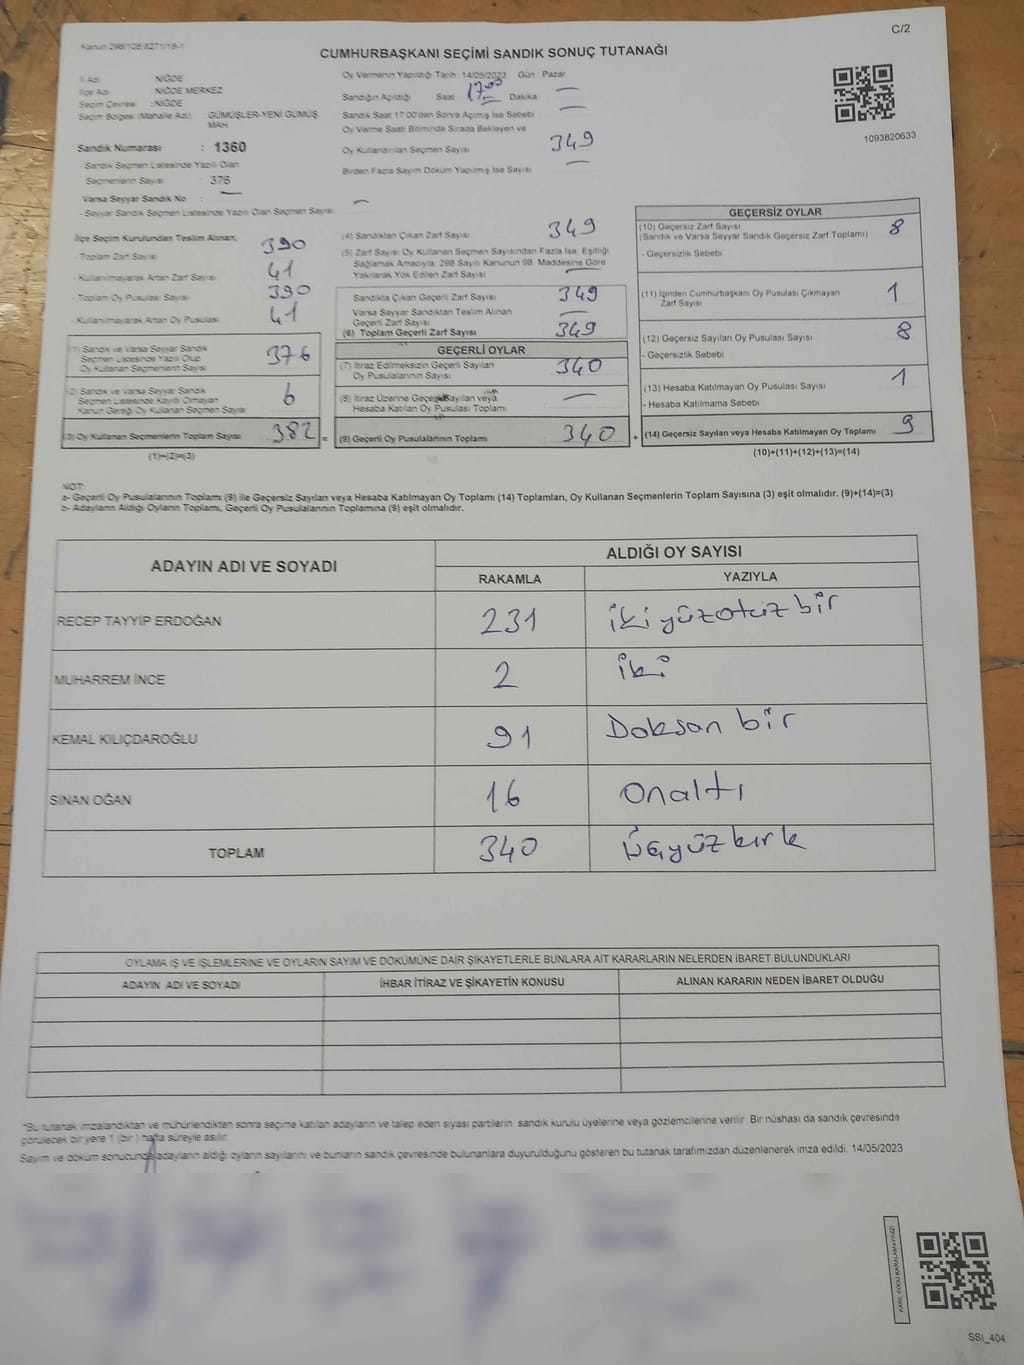 C/2
Kanun:298/128,6271/18-1
CUMHURBAŞKANI SEÇİMİ SANDIK SONUÇ TUTANAĞI
1093820633
İl Adı : NİĞDE
İlçe Adı : NİĞDE MERKEZ
Seçim Çevresi : NİĞDE
Seçim Bölgesi (Mahalle Adı) : GÜMÜŞLER-YENİ GÜMÜŞ MAH.
Sandık Numarası : 1360
- Sandık Seçmen Listesinde Yazılı Olan
Seçmenlerin Sayısı : 376
Varsa Seyyar Sandık No : —
- Seyyar Sandık Seçmen Listesinde Yazılı Olan Seçmen Sayısı —
Oy Vermenin Yapıldığı Tarih 14/05/2023 Gün Pazar
Sandığın Açıldığı Saat 17:00 Dakika —
Sandık Saat 17.00'den Sonra Açılmış İse Sebebi —
Oy Verme Saati Bitiminde Sırada Bekleyen ve
Oy Kullandırılan Seçmen Sayısı 349
Birden Fazla Sayım Döküm Yapılmış İse Sayısı —
İlçe Seçim Kurulundan Teslim Alınan;
- Toplam Zarf Sayısı 390
- Kullanılmayarak Artan Zarf Sayısı 41
- Toplam Oy Pusulası Sayısı 390
- Kullanılmayarak Artan Oy Pusulası 41
(1) Sandık ve Varsa Seyyar Sandık
Seçmen Listesinde Yazılı Olup
Oy Kullanan Seçmenlerin Sayısı 376
(2) Sandık ve Varsa Seyyar Sandık
Seçmen Listesinde Kayıtlı Olmayan
Kanun Gereği Oy Kullanan Seçmen Sayısı 6
(3) Oy Kullanan Seçmenlerin Toplam Sayısı 382 =
(1)+(2)=(3)
(4) Sandıktan Çıkan Zarf Sayısı 349
(5) Zarf Sayısı Oy Kullanan Seçmen Sayısından Fazla İse, Eşitliği
Sağlamak Amacıyla, 298 Sayılı Kanunun 98. Maddesine Göre
Yakılarak Yok Edilen Zarf Sayısı —
Sandıkta Çıkan Geçerli Zarf Sayısı 349
Varsa Seyyar Sandıktan Teslim Alınan
Geçerli Zarf Sayısı —
(6) Toplam Geçerli Zarf Sayısı 349
GEÇERLİ OYLAR
(7) İtiraz Edilmeksizin Geçerli Sayılan
Oy Pusulalarının Sayısı 340
(8) İtiraz Üzerine Geçerli Sayılan veya
Hesaba Katılan Oy Pusulası Toplamı —
(9) Geçerli Oy Pusulalarının Toplamı 340 +
GEÇERSİZ OYLAR
(10) Geçersiz Zarf Sayısı
(Sandık ve Varsa Seyyar Sandık Geçersiz Zarf Toplamı) 8
- Geçersizlik Sebebi
(11) İçinden Cumhurbaşkanı Oy Pusulası Çıkmayan
Zarf Sayısı 1
(12) Geçersiz Sayılan Oy Pusulası Sayısı 8
- Geçersizlik Sebebi
(13) Hesaba Katılmayan Oy Pusulası Sayısı 1
- Hesaba Katılmama Sebebi
(14) Geçersiz Sayılan veya Hesaba Katılmayan Oy Toplamı 9
(10)+(11)+(12)+(13)=(14)
NOT:
a- Geçerli Oy Pusulalarının Toplamı (9) ile Geçersiz Sayılan veya Hesaba Katılmayan Oy Toplamı (14) Toplamları, Oy Kullanan Seçmenlerin Toplam Sayısına (3) eşit olmalıdır. (9)+(14)=(3)
b- Adayların Aldığı Oyların Toplamı, Geçerli Oy Pusulalarının Toplamına (9) eşit olmalıdır.
ADAYIN ADI VE SOYADI
ALDIĞI OY SAYISI
RAKAMLA YAZIYLA
RECEP TAYYİP ERDOĞAN 231 ikiyüzotuzbir
MUHARREM İNCE 2 iki
KEMAL KILIÇDAROĞLU 91 Doksan bir
SİNAN OĞAN 16 Onaltı
TOPLAM 340 Üçyüzkırk
OYLAMA İŞ VE İŞLEMLERİNE VE OYLARIN SAYIM VE DÖKÜMÜNE DAİR ŞİKAYETLERLE BUNLARA AİT KARARLARIN NELERDEN İBARET BULUNDUKLARI
ADAYIN ADI VE SOYADI İHBAR İTİRAZ VE ŞİKAYETİN KONUSU ALINAN KARARIN NEDEN İBARET OLDUĞU
*Bu tutanak imzalandıktan ve mühürlendikten sonra seçime katılan adayların ve talep eden siyasi partilerin sandık kurulu üyelerine veya gözlemcilerine verilir. Bir nüshası da sandık çevresinde
görülecek bir yere 1 (bir) hafta süreyle asılır.
Sayım ve döküm sonucunda adayların aldığı oyların sayılarını ve bunların sandık çevresinde bulunanlara duyurulduğunu gösteren bu tutanak tarafımızdan düzenlenerek imza edildi. 14/05/2023
KARE KODU KARALAMAYINIZ!
SSİ_404